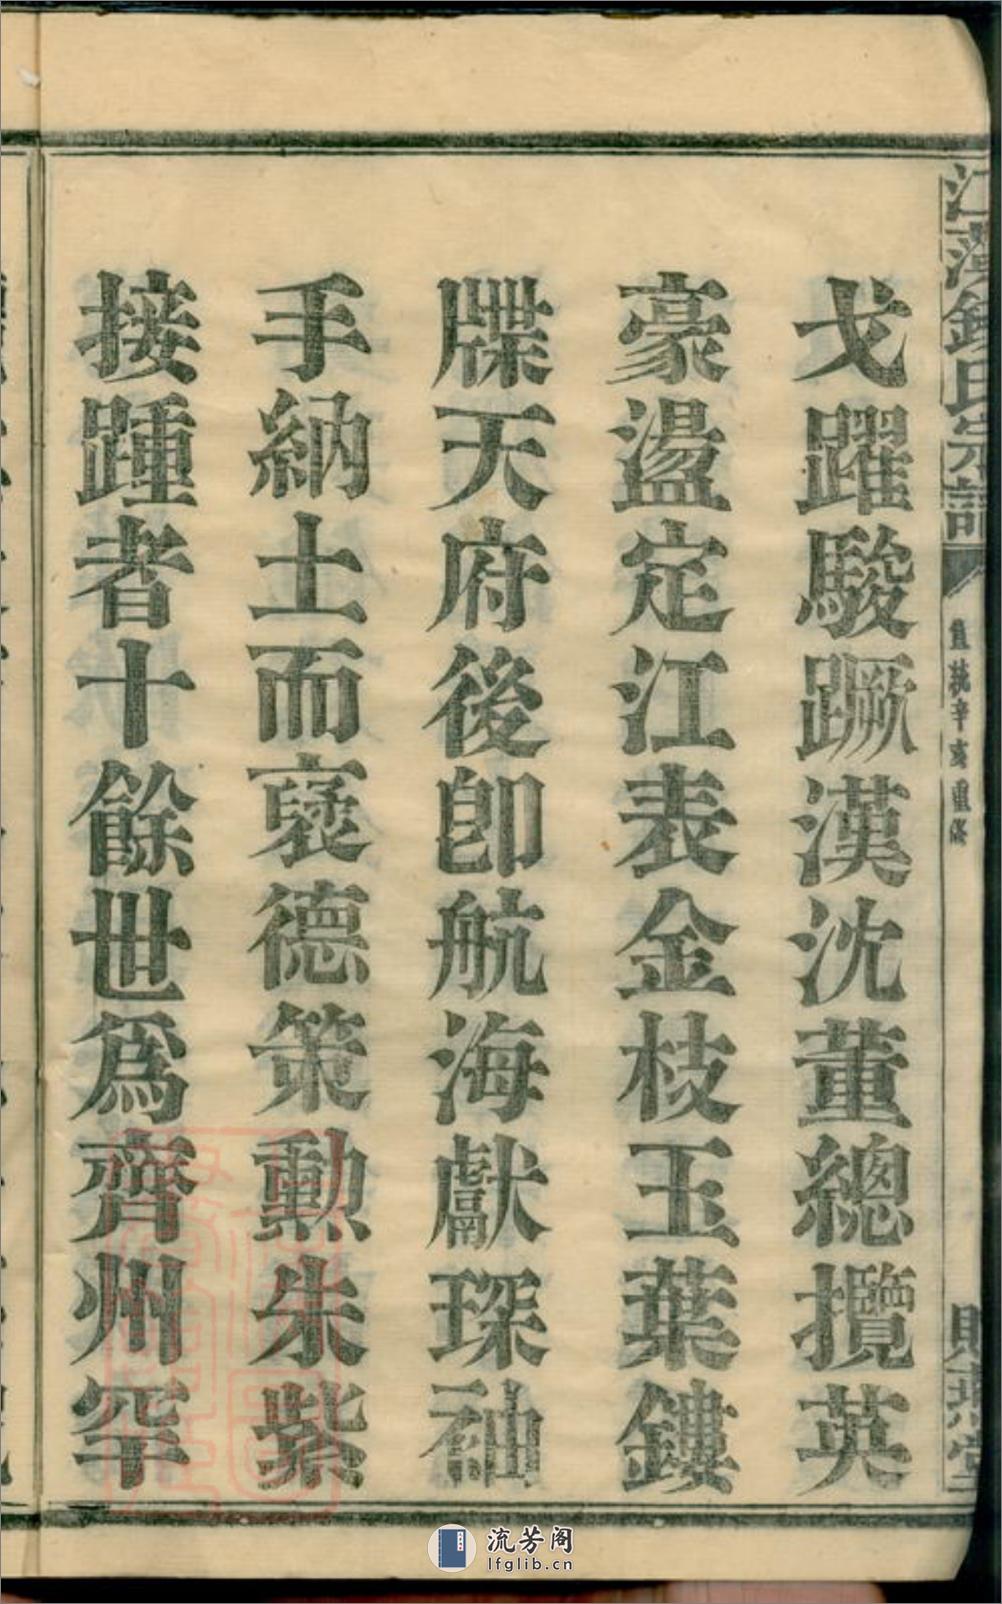 戈躍駿蹶漢沈董總攬英
豪盪定江表金枝玉葉鏤
牒天府後卽航海獻琛袖
手納土而褒德策勲朱紫
接踵者十餘世爲齊州罕
氏宗譜
辛亥重修
流芳阁
lfglib.cn